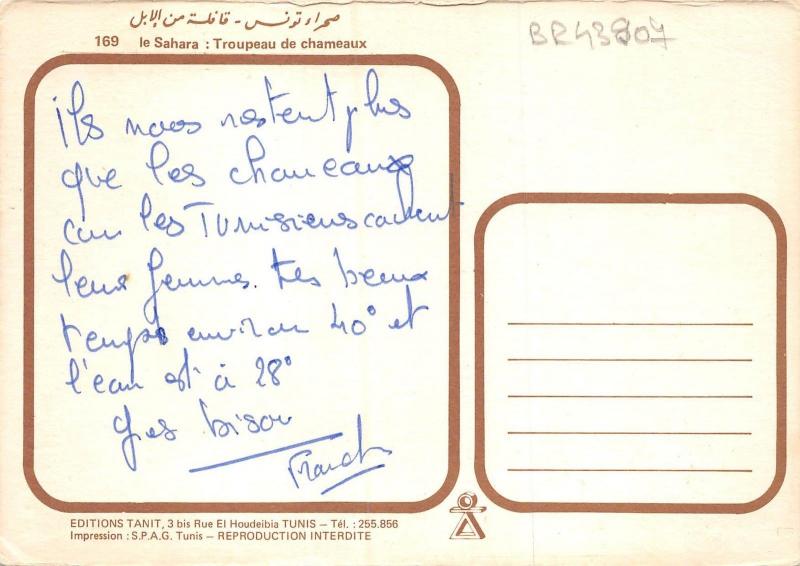 صحراء تونس - قافلة من الإبل
169 le Sahara : Troupeau de chameaux
BR43807
ils nous restent plus
que les chameaux
car les Tunisiens cachent
leur femmes. tes beaux
temps environ 40° et
l'eau est à 28°
Gos bisou
EDITIONS TANIT, 3 bis Rue El Houdeibia TUNIS – Tél. : 255.856
Impression : S.P.A.G. Tunis – REPRODUCTION INTERDITE